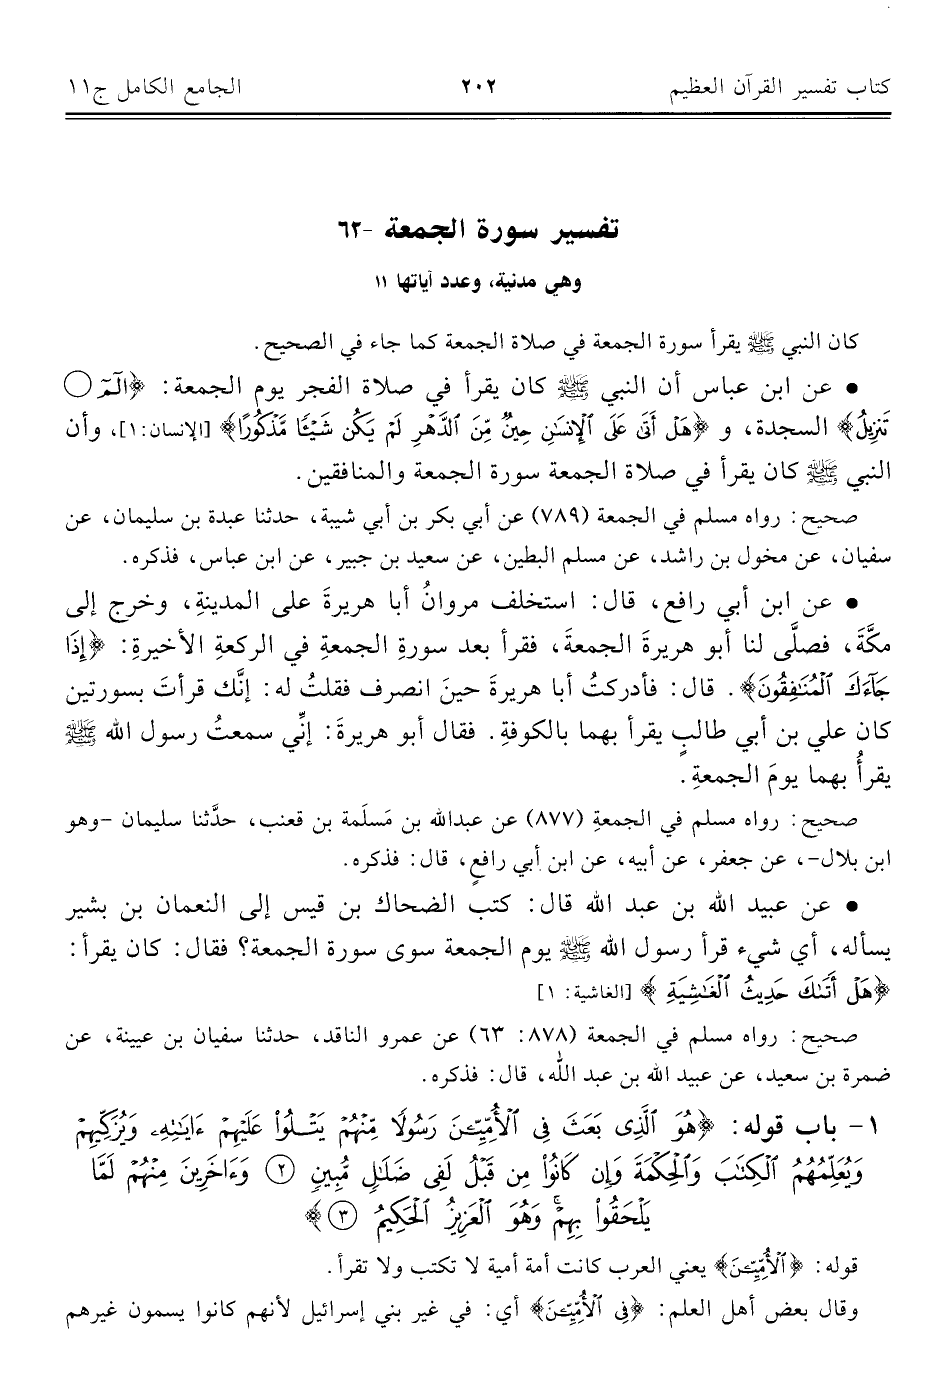 كتاب تفسير القرآن العظيم ٢٠٢ الجامع الكامل ج١١
تفسير سورة الجمعة -٦٢
وهي مدنية، وعدد آياتها ١١
كان النبي ﷺ يقرأ سورة الجمعة في صلاة الجمعة كما جاء في الصحيح.
• عن ابن عباس أن النبي ﷺ كان يقرأ في صلاة الفجر يوم الجمعة: ﴿الٓمٓ ۝
تَنزِيلُ﴾ السجدة، و ﴿هَلْ أَتَىٰ عَلَى ٱلْإِنسَٰنِ حِينٌ مِّنَ ٱلدَّهْرِ لَمْ يَكُن شَيْـًٔا مَّذْكُورًا﴾ [الإنسان:١]، وأن
النبي ﷺ كان يقرأ في صلاة الجمعة سورة الجمعة والمنافقين.
صحيح: رواه مسلم في الجمعة (٧٨٩) عن أبي بكر بن أبي شيبة، حدثنا عبدة بن سليمان، عن
سفيان، عن مخول بن راشد، عن مسلم البطين، عن سعيد بن جبير، عن ابن عباس، فذكره.
• عن ابن أبي رافع، قال: استخلف مروانُ أبا هريرةَ على المدينةِ، وخرج إلى
مكَّةَ، فصلَّى لنا أبو هريرةَ الجمعةَ، فقرأ بعد سورةِ الجمعةِ في الركعةِ الأخيرةِ: ﴿إِذَا
جَآءَكَ ٱلْمُنَٰفِقُونَ﴾. قال: فأدركتُ أبا هريرةَ حينَ انصرف فقلتُ له: إنَّك قرأتَ بسورتين
كان علي بن أبي طالبٍ يقرأ بهما بالكوفةِ. فقال أبو هريرةَ: إنِّي سمعتُ رسول الله ﷺ
يقرأُ بهما يومَ الجمعةِ.
صحيح: رواه مسلم في الجمعةِ (٨٧٧) عن عبدالله بن مَسلَمة بن قعنب، حدَّثنا سليمان -وهو
ابن بلال-، عن جعفر، عن أبيه، عن ابن أبي رافعٍ، قال: فذكره.
• عن عبيد الله بن عبد الله قال: كتب الضحاك بن قيس إلى النعمان بن بشير
يسأله، أي شيء قرأ رسول الله ﷺ يوم الجمعة سوى سورة الجمعة؟ فقال: كان يقرأ:
﴿هَلْ أَتَىٰكَ حَدِيثُ ٱلْغَٰشِيَةِ ﴾ [الغاشية: ١]
صحيح: رواه مسلم في الجمعة (٨٧٨: ٦٣) عن عمرو الناقد، حدثنا سفيان بن عيينة، عن
ضمرة بن سعيد، عن عبيد الله بن عبد الله، قال: فذكره.
١- باب قوله: ﴿هُوَ ٱلَّذِى بَعَثَ فِى ٱلْأُمِّيِّـۧنَ رَسُولًا مِّنْهُمْ يَتْلُوا۟ عَلَيْهِمْ ءَايَٰتِهِۦ وَيُزَكِّيهِمْ
وَيُعَلِّمُهُمُ ٱلْكِتَٰبَ وَٱلْحِكْمَةَ وَإِن كَانُوا۟ مِن قَبْلُ لَفِى ضَلَٰلٍ مُّبِينٍ ۝٢ وَءَاخَرِينَ مِنْهُمْ لَمَّا
يَلْحَقُوا۟ بِهِمْ ۚ وَهُوَ ٱلْعَزِيزُ ٱلْحَكِيمُ ۝٣ ﴾
قوله: ﴿ٱلْأُمِّيِّـۧنَ﴾ يعني العرب كانت أمة أمية لا تكتب ولا تقرأ.
وقال بعض أهل العلم: ﴿فِى ٱلْأُمِّيِّـۧنَ﴾ أي: في غير بني إسرائيل لأنهم كانوا يسمون غيرهم